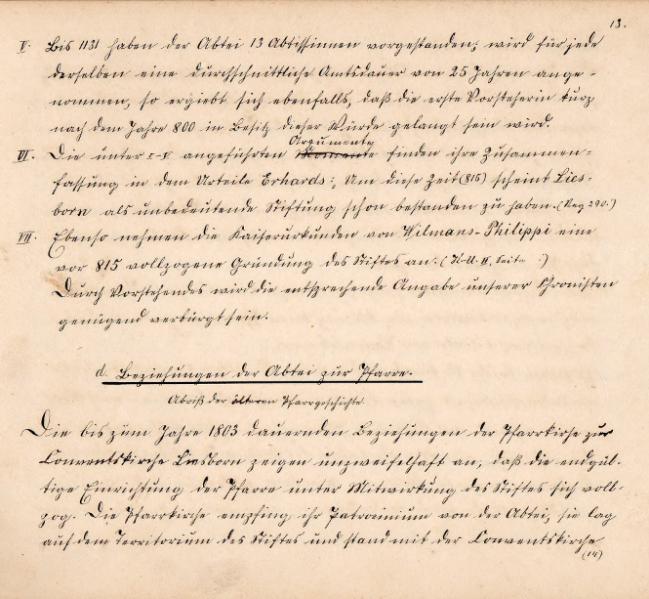 13.
V. Bis 1131 haben der Abtei 13 Äbtissinnen vorgestanden; wird für jede
derselben eine durchschnittliche Amtsdauer von 25 Jahren ange-
nommen, so ergiebt sich ebenfalls, daß die erste Vorsteherin kurz
nach dem Jahre 800 in Besitz dieser Würde gelangt sein wird.
Argumente
VI. Die unter I-V angeführten finden ihre Zusammen-
fassung in dem Urteile Erhards: „Um diese Zeit (815) scheint Lies-
born als unbedeutende Stiftung schon bestanden zu haben. (Reg. 290.)
VII. Ebenso nehmen die Kaiserurkunden von Wilmans-Philippi eine
vor 815 vollzogene Gründung des Stiftes an. (K-U. II, Seite .)
Durch Vorstehendes wird die entsprechende Angabe unserer Chronisten
genügend verbürgt sein.
d. Beziehungen der Abtei zur Pfarre.
Abriß der älteren Pfarrgeschichte
Die bis zum Jahre 1803 dauernden Beziehungen der Pfarrkirche zur
Conventskirche Liesborn zeigen unzweifelhaft an, daß die endgül-
tige Einrichtung der Pfarre unter Mitwirkung des Stiftes sich voll-
zog. Die Pfarrkirche empfing ihr Patrocinium von der Abtei, sie lag
auf dem Territorium des Stiftes und stand mit der Conventskirche
(14)